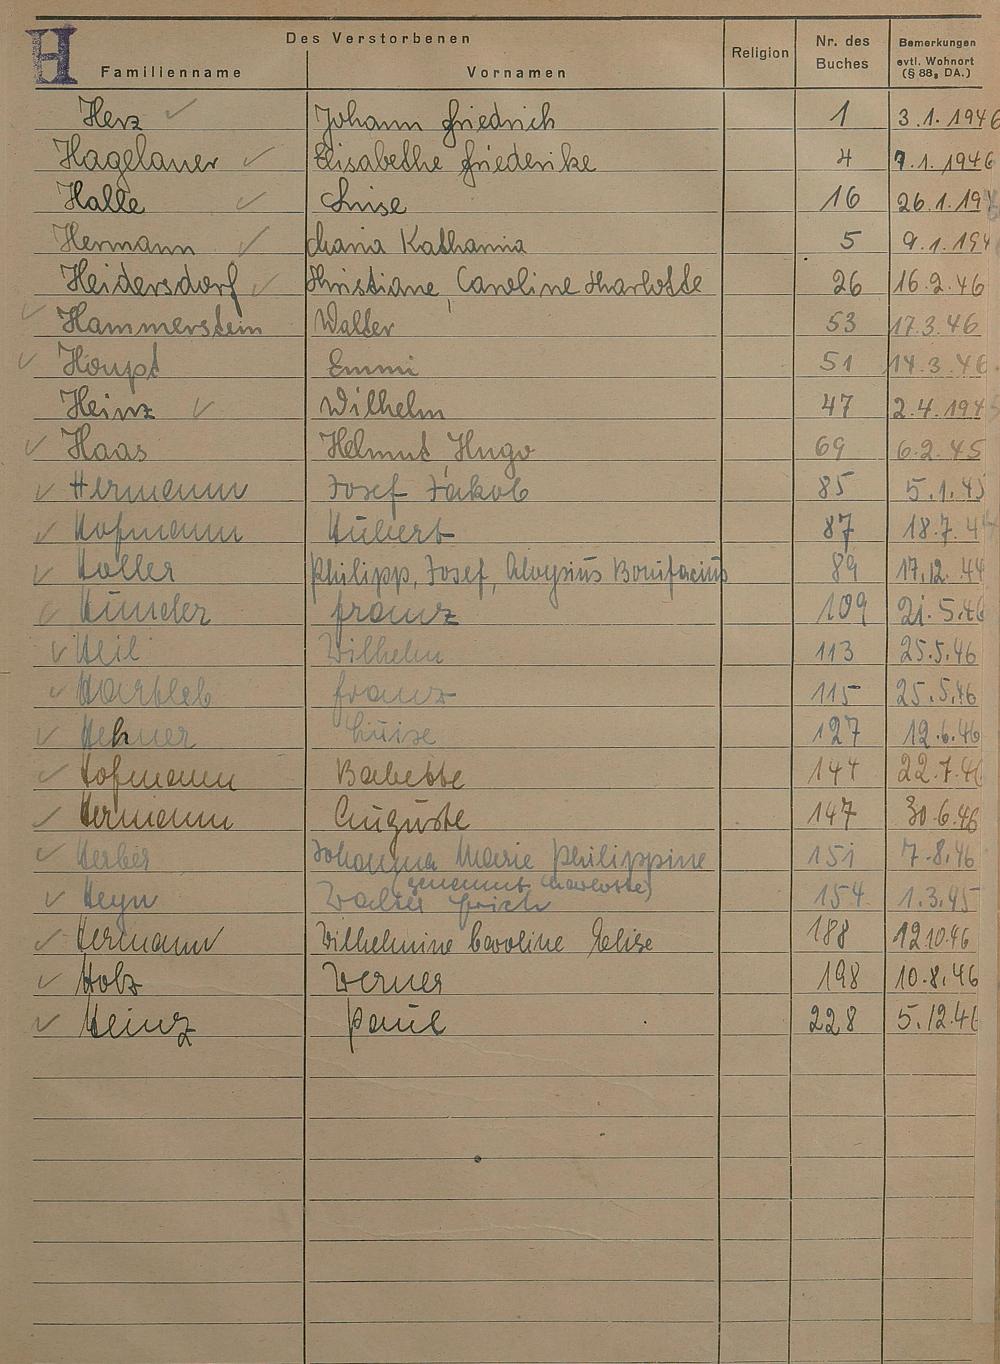 H
Des Verstorbenen
Familienname Vornamen Religion Nr. des Buches Bemerkungen evtl. Wohnort (§ 88, DA.)
Herz Johann Friedrich 1 3.1.1946
Hagelauer Elisabethe Friederike 4 7.1.1946
Halle Luise 16 26.1.194
Hermann Maria Katharina 5 9.1.194
Heidersdorf Christiane, Caroline Charlotte 26 16.2.46
Hammerstein Walter 53 17.3.46
Haupt Emmi 51 14.3.46
Heinz Wilhelm 47 2.4.194
Haas Helmut, Hugo 69 6.2.45
Hermann Josef Jakob 85 5.1.45
Hofmann Hubert 87 18.7.44
Holler Philipp, Josef, Aloysius Bonifacius 89 17.12.44
Hünder Franz 109 21.5.46
Heil Wilhelm 113 25.5.46
Hartleb Franz 115 25.5.46
Hehner Luise 127 12.6.46
Hofmann Babette 144 22.7.46
Hermann Auguste 147 30.6.46
Herber Johanna Marie Philippine 151 7.8.46
(genannt Charlotte)
Heyn Erich 154 1.3.45
Hermann Wilhelmine Caroline Elise 188 12.10.46
Holz Werner 198 10.8.46
Heinz Paul 228 5.12.46